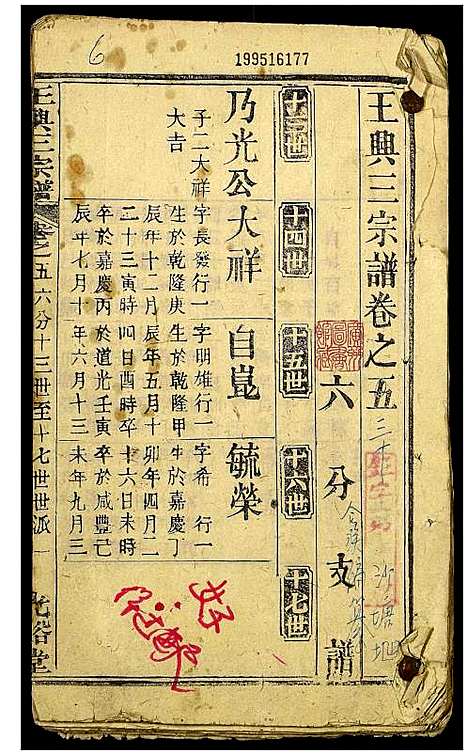 6
199516177
王興三宗譜卷之五
六分支譜
沙塘
十三世
十四世
十五世
十六世
十七世
乃光公
子二大祥
大吉
大祥
字長發行一
生於乾隆庚
辰年十二月
二十三寅時
卒於嘉慶丙
辰年七月十
自崑
字明雄行一
生於乾隆甲
辰年五月十
四日酉時卒
於道光壬寅
年六月十三
毓榮
字希 行一
生於嘉慶丁
卯年四月二
十六日未時
卒於咸豐己
未年九月三
王興三宗譜
卷之五六分十三世至十七世世派一
光裕堂